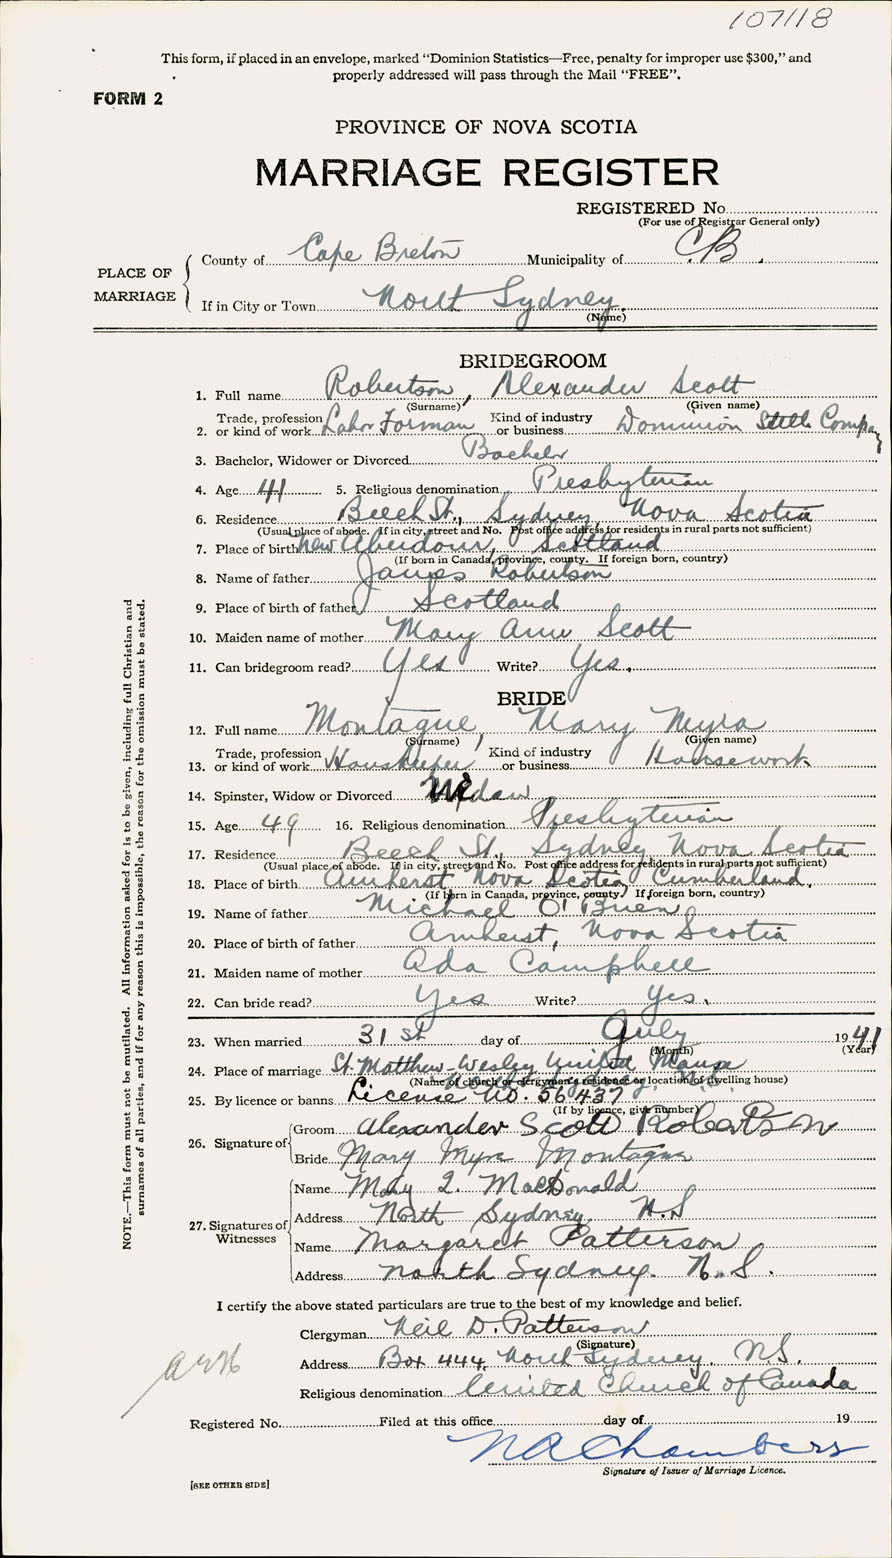 107118
This form, if placed in an envelope, marked “Dominion Statistics—Free, penalty for improper use $300,” and
properly addressed will pass through the Mail “FREE”.
FORM 2
PROVINCE OF NOVA SCOTIA
MARRIAGE REGISTER
REGISTERED No.
(For use of Registrar General only)
PLACE OF MARRIAGE
County of Cape Breton Municipality of C.B.
If in City or Town North Sydney.
(Name)
BRIDEGROOM
1. Full name Robertson, Alexander Scott
(Surname) (Given name)
2. Trade, profession or kind of work Labor Forman Kind of industry or business Dominion Steel Company
3. Bachelor, Widower or Divorced Bachelor
4. Age 41 5. Religious denomination Presbyterian
6. Residence Beech St., Sydney, Nova Scotia
(Usual place of abode. If in city, street and No. Post office address for residents in rural parts not sufficient)
7. Place of birth New Aberdour, Scotland
(If born in Canada, province, county. If foreign born, country)
8. Name of father James Robertson
9. Place of birth of father Scotland
10. Maiden name of mother Mary Ann Scott
11. Can bridegroom read? Yes Write? Yes.
BRIDE
12. Full name Montague, Mary Myra
(Surname) (Given name)
13. Trade, profession or kind of work Housekeeper Kind of industry or business Housework
14. Spinster, Widow or Divorced Widow
15. Age 49 16. Religious denomination Presbyterian
17. Residence Beech St., Sydney Nova Scotia
(Usual place of abode. If in city, street and No. Post office address for residents in rural parts not sufficient)
18. Place of birth Amherst Nova Scotia, Cumberland.
(If born in Canada, province, county. If foreign born, country)
19. Name of father Michael O'Brien
20. Place of birth of father Amherst, Nova Scotia
21. Maiden name of mother Ada Campbell
22. Can bride read? Yes Write? Yes.
23. When married 31st day of July 1941
(Month) (Year)
24. Place of marriage St. Matthew-Wesley United Manse
(Name of church or clergyman's residence or location of dwelling house)
25. By licence or banns License No. 56437
(If by licence, give number)
26. Signature of
Groom Alexander Scott Robertson
Bride Mary Myra Montague
27. Signatures of Witnesses
Name Mary I. MacDonald
Address North Sydney, N.S
Name Margaret Patterson
Address North Sydney. N.S.
I certify the above stated particulars are true to the best of my knowledge and belief.
Clergyman Neil D. Patterson
(Signature)
Address Box 444, North Sydney. N.S.
Religious denomination United Church of Canada
Registered No. Filed at this office day of 19
N A Chambers
Signature of Issuer of Marriage Licence.
[SEE OTHER SIDE]
NOTE.—This form must not be mutilated. All information asked for is to be given, including full Christian and
surnames of all parties, and if for any reason this is impossible, the reason for the omission must be stated.